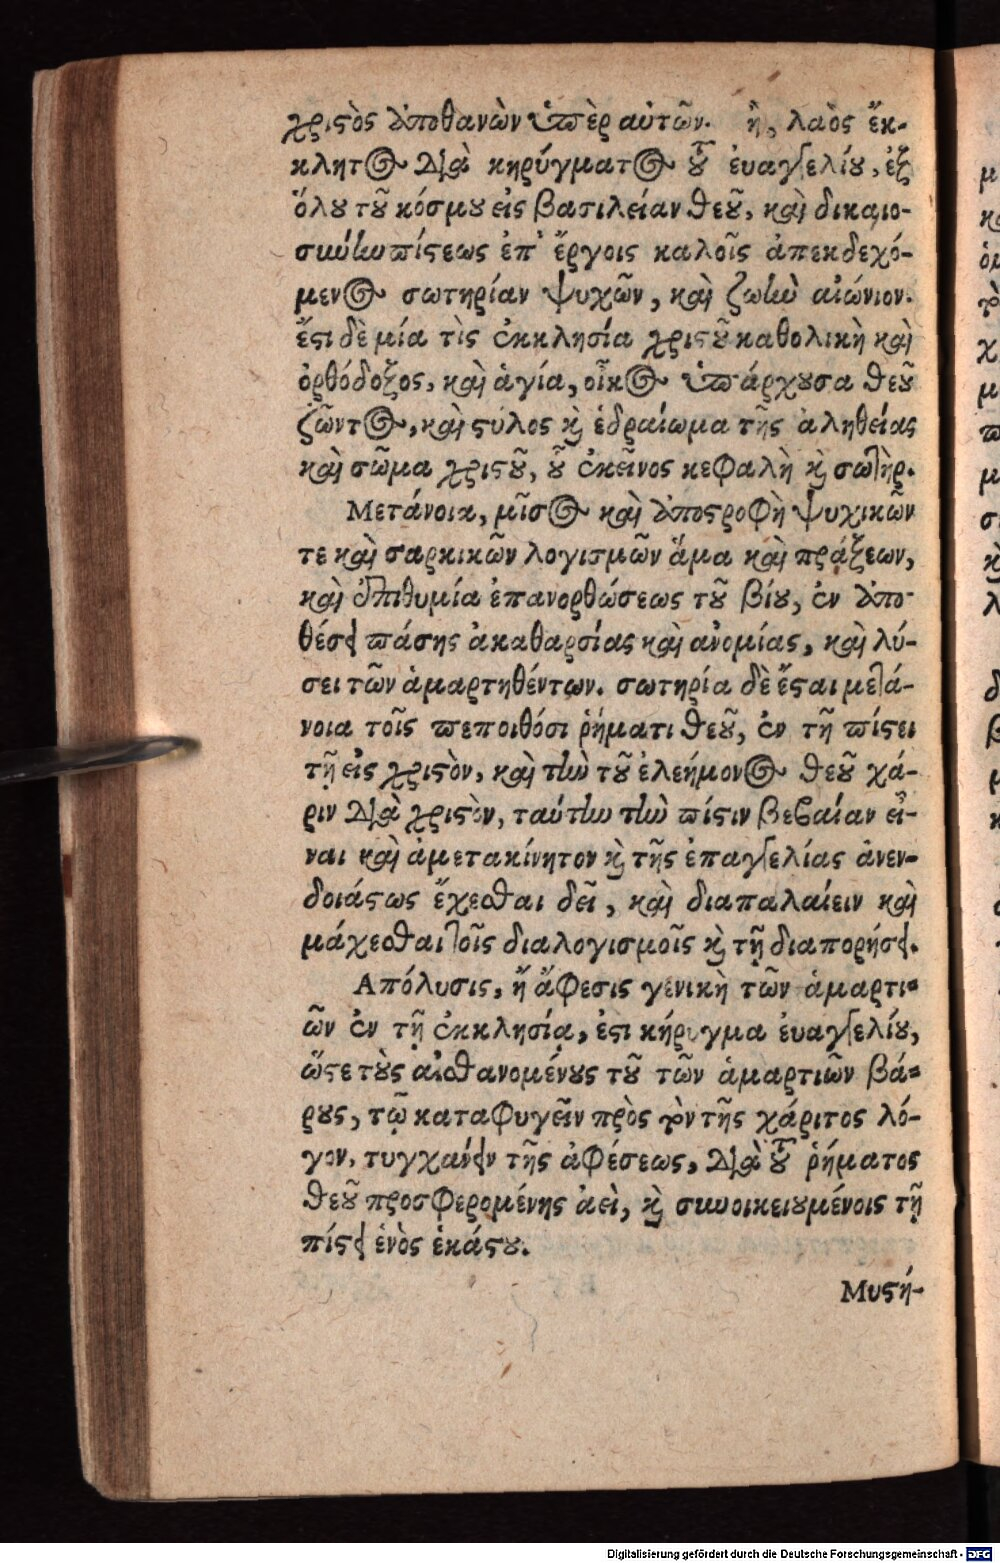 χριστὸς ἀποθανὼν ὑπὲρ αὐτῶν. ἢ, λαὸς ἔκ-
κλητος διὰ κηρύγματος τοῦ ἐυαγγελίου, ἐξ
ὅλου τοῦ κόσμου εἰς βασιλείαν θεοῦ, καὶ δικαιο-
σύνην πίστεως ἐπ' ἔργοις καλοῖς ἀπεκδεχό-
μενος σωτηρίαν ψυχῶν, καὶ ζωὴν αἰώνιον.
ἔστι δὲ μία τὶς ἐκκλησία χριστοῦ καθολικὴ καὶ
ὀρθόδοξος, καὶ ἁγία, οἶκος ὑπάρχουσα θεοῦ
ζῶντος, καὶ στύλος καὶ ἑδραίωμα τῆς ἀληθείας
καὶ σῶμα χριστοῦ, οὗ ἐκεῖνος κεφαλὴ καὶ σωτήρ.
Μετάνοια, μῖσος καὶ ἀποστροφὴ ψυχικῶν
τε καὶ σαρκικῶν λογισμῶν ἅμα καὶ πράξεων,
καὶ ἐπιθυμία ἐπανορθώσεως τοῦ βίου, ἐν ἀπο-
θέσει πάσης ἀκαθαρσίας καὶ ἀνομίας, καὶ λύ-
σει τῶν ἁμαρτηθέντων. σωτηρία δὲ ἔσται μετά-
νοια τοῖς πεποιθόσι ῥήματι θεοῦ, ἐν τῇ πίστει
τῇ εἰς χριστὸν, καὶ τὴν τοῦ ἐλεήμονος θεοῦ χά-
ριν διὰ χριστὸν, ταύτην τὴν πίστιν βεβαίαν εἶ-
ναι καὶ ἀμετακίνητον καὶ τῆς ἐπαγγελίας ἀνεν-
δοιάστως ἔχεσθαι δεῖ, καὶ διαπαλαίειν καὶ
μάχεσθαι τοῖς διαλογισμοῖς καὶ τῇ διαπορήσει.
Απόλυσις, ἢ ἄφεσις γενικὴ τῶν ἁμαρτι-
ῶν ἐν τῇ ἐκκλησίᾳ, ἐστι κήρυγμα ἐυαγγελίου,
ὥστε τοὺς αἰσθανομένους τοῦ τῶν ἁμαρτιῶν βά-
ρους, τῷ καταφυγεῖν πρὸς τὸν τῆς χάριτος λό-
γον, τυγχάνειν τῆς ἀφέσεως, διὰ τοῦ ῥήματος
θεοῦ προσφερομένης ἀεὶ, καὶ συνοικειουμένοις τῇ
πίστει ἑνὸς ἑκάστου.
Μυστή-
Digitalisierung gefördert durch die Deutsche Forschungsgemeinschaft - DFG